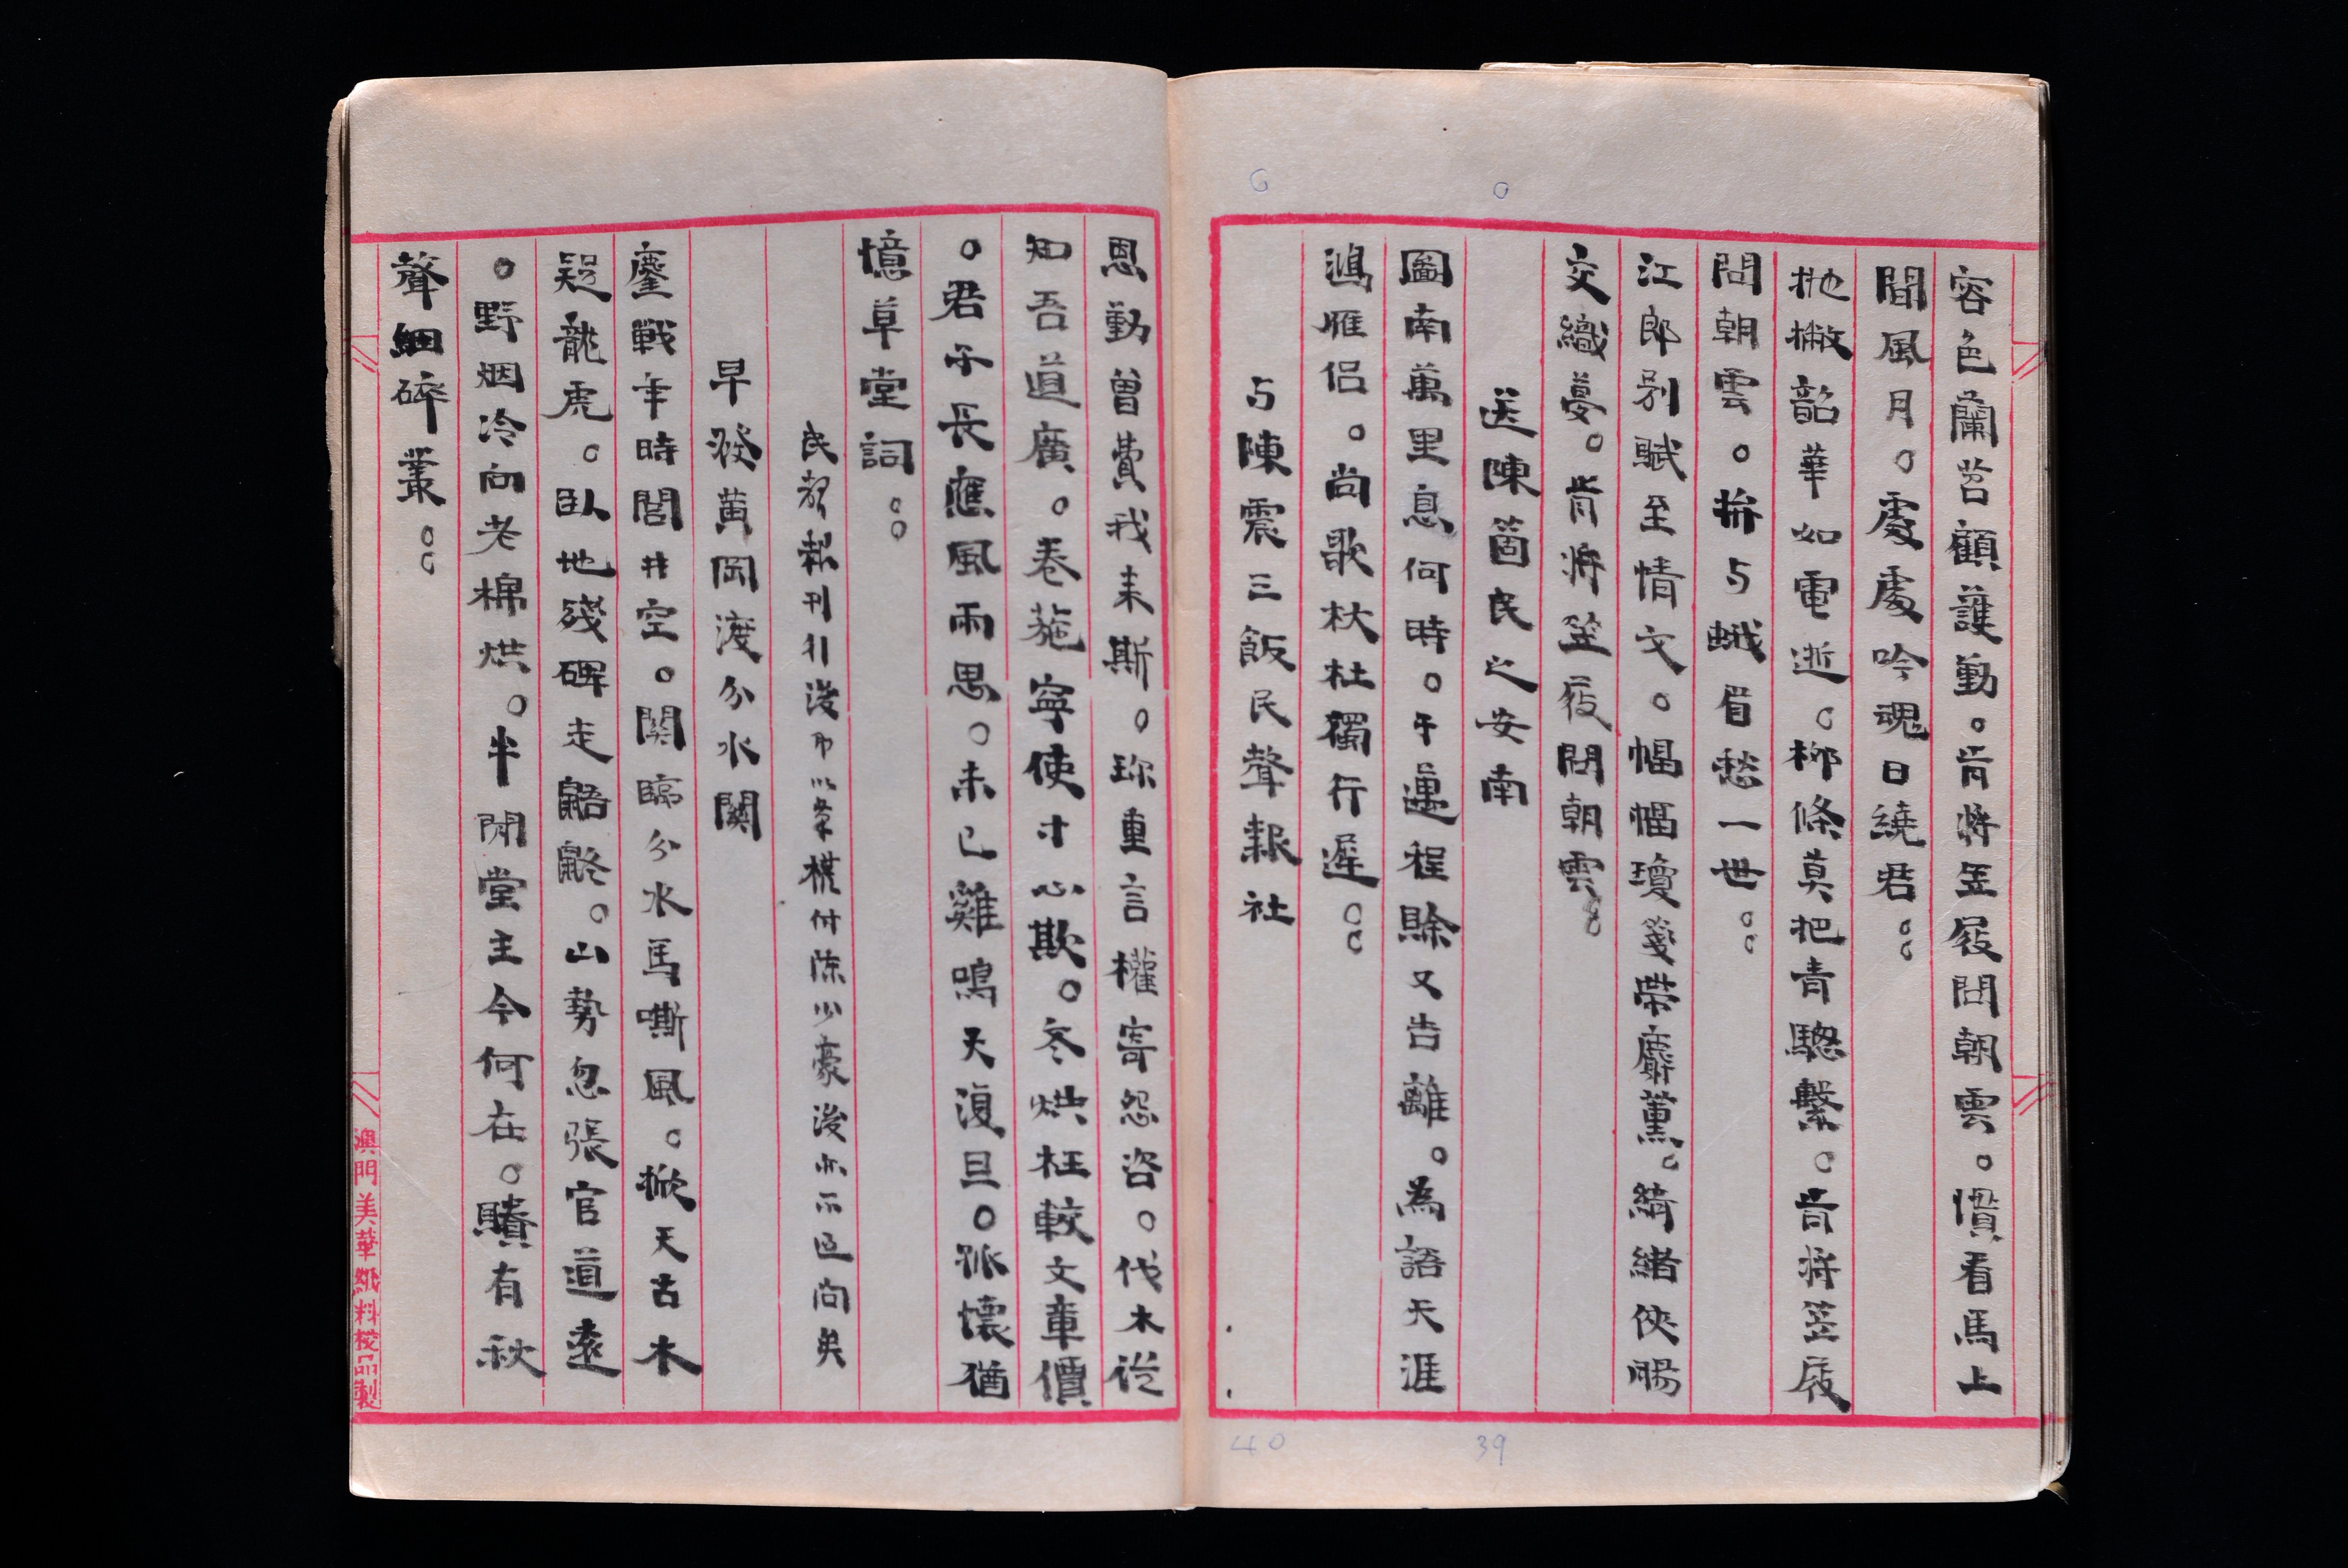 容色蘭苕顧護勤。肯將笠屐問朝雲。慣看馬上
間風月。處處吟魂日繞君。。
拋撇韶華如電逝。柳條莫把青驄繫。肯將笠屐
問朝雲。拚与蛾眉愁一世。。
江郎别賦至情文。幅幅瓊箋帶麝薰。綺緒俠腸
交織夢。肯將笠屐問朝雲。。
送陳箇民之安南
圖南萬里息何時。干邁程賒又告離。為語天涯
鴻雁侣。尚歌杕杜獨行遲。。
与陳震三飯民聲報社
恩勤曾費我来斯。珍重言權寄怨咨。伐木從
知吾道廣。卷葹寧使寸心欺。冬烘枉較文章價
。君子長應風雨思。未已雞鳴天復旦。孤懷猶
憶草堂詞。。
民聲報刊行後
早發黄岡渡分水關
鏖戰年時閭井空。關臨分水馬嘶風。掀天古木
疑龍虎。臥地殘碑走鼯鼨。山勢忽張官道遠
。野烟冷向老棉烘。半閒堂主今何在。賸有秋
聲細碎叢。。
澳門美華紙料校品製
39
40